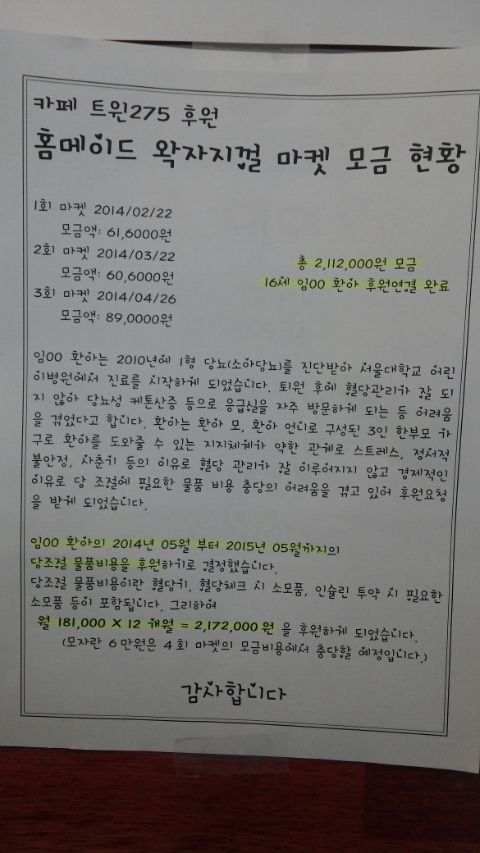 카페 트윈275 후원
홈메이드 왁자지껄 마켓 모금 현황
1회 마켓 2014/02/22
모금액: 61,6000원
2회 마켓 2014/03/22
모금액: 60,6000원
3회 마켓 2014/04/26
모금액: 89,0000원
총 2,112,000원 모금
16세 임00 환아 후원연결 완료
임00 환아는 2010년에 1형 당뇨(소아당뇨)를 진단받아 서울대학교 어린
이병원에서 진료를 시작하게 되었습니다. 퇴원 후에 혈당관리가 잘 되
지 않아 당뇨성 케톤산증 등으로 응급실을 자주 방문하게 되는 등 어려움
을 겪었다고 합니다. 환아는 환아 모, 환아 언니로 구성된 3인 한부모 가
구로 환아를 도와줄 수 있는 지지체계가 약한 관계로 스트레스, 정서적
불안정, 사춘기 등의 이유로 혈당 관리가 잘 이루어지지 않고 경제적인
이유로 당 조절에 필요한 물품 비용 충당의 어려움을 겪고 있어 후원요청
을 받게 되었습니다.
임00 환아의 2014년 05월 부터 2015년 05월까지의
당조절 물품비용을 후원하기로 결정했습니다.
당조절 물품비용이란 혈당기, 혈당체크 시 소모품, 인슐린 투약 시 필요한
소모품 등이 포함됩니다. 그리하여
월 181,000 X 12 개월 = 2,172,000원 을 후원하게 되었습니다.
(모자란 6만원은 4회 마켓의 모금비용에서 충당할 예정입니다.)
감사합니다